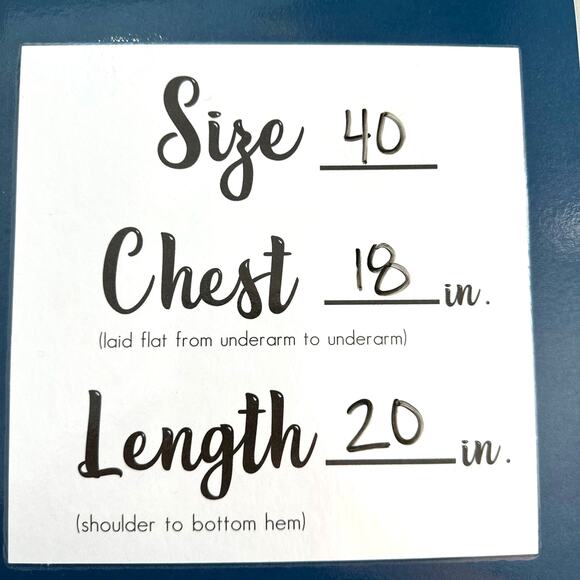 Size 40
Chest 18 in.
(laid flat from underarm to underarm)
Length 20 in.
(shoulder to bottom hem)